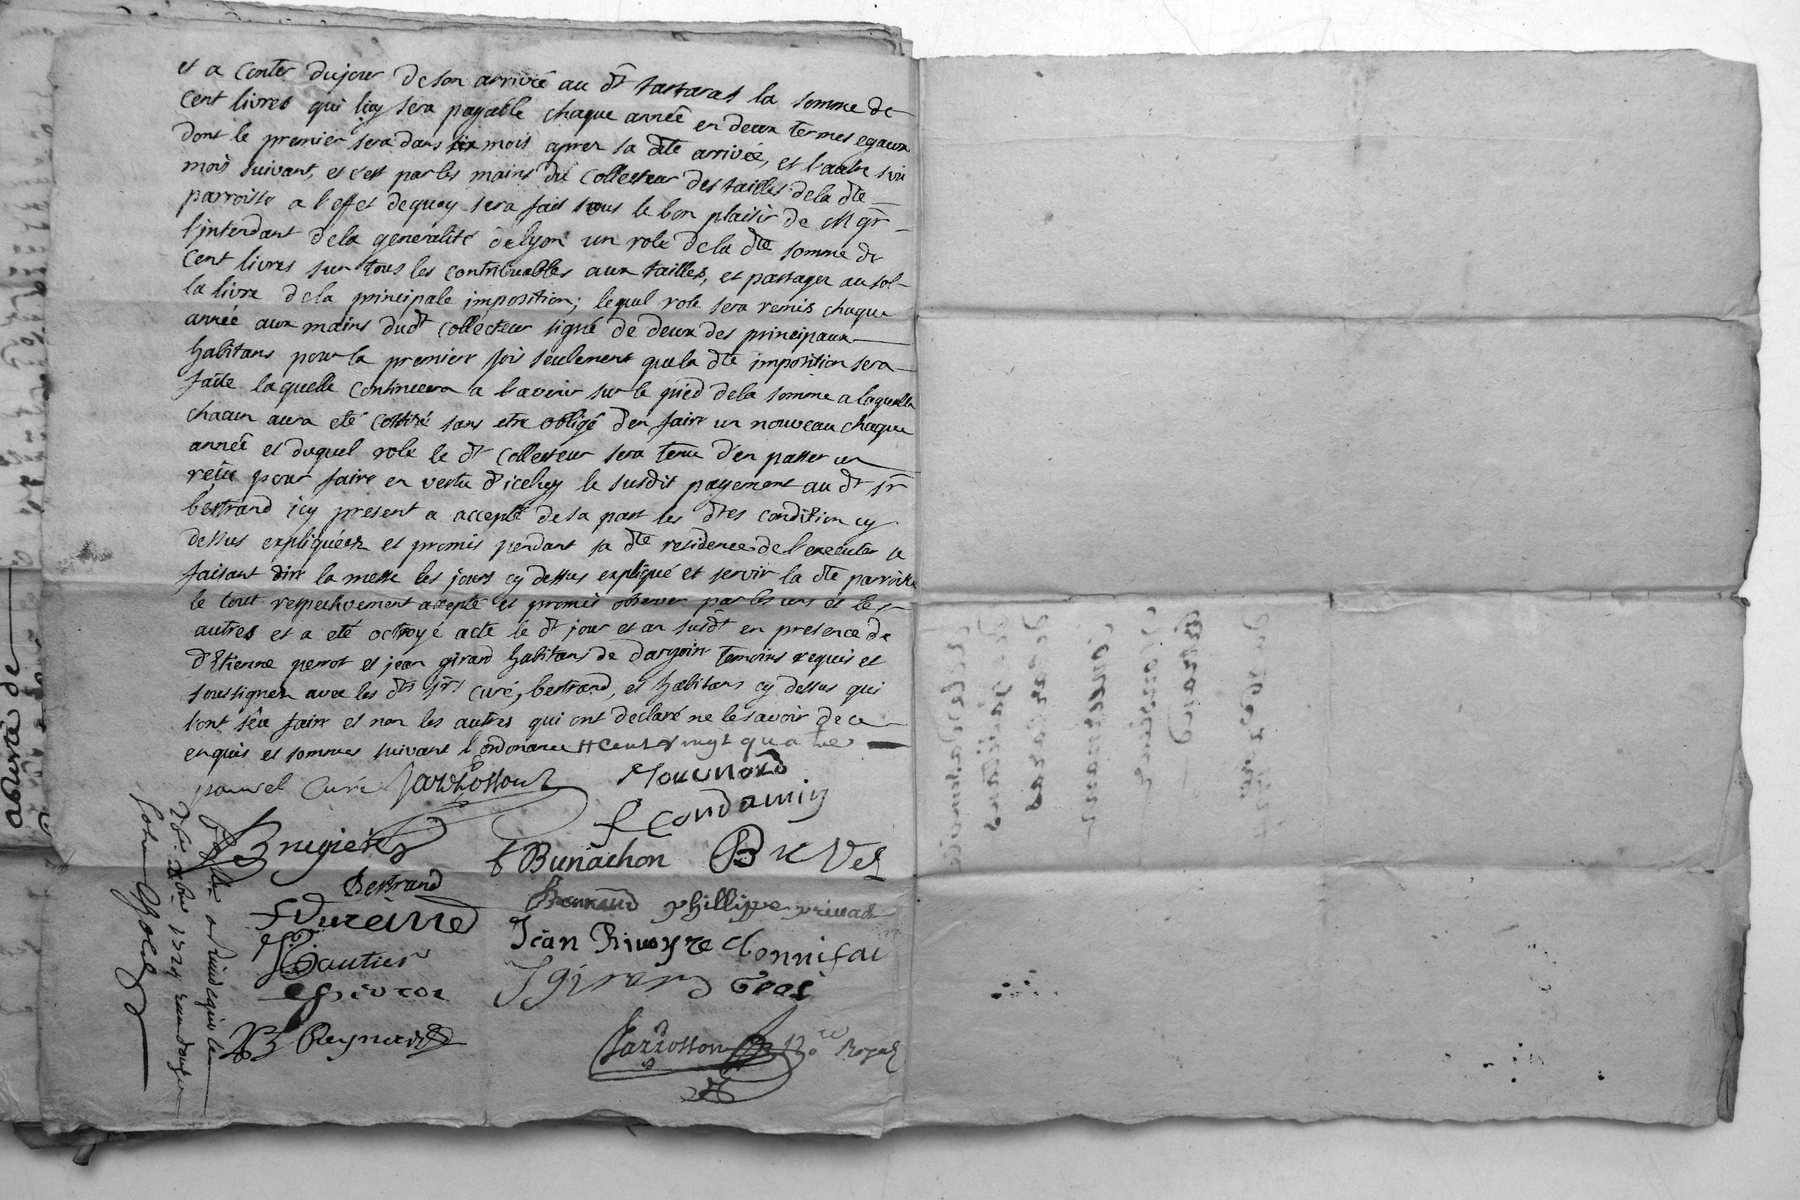 et a conter du jour de son arrivée au dt tartaras la somme de
cent livres qui luy sera payable chaque année en deux termes egaux
dont le premier sera dans six mois apres sa dte arrivée, et l'autre six
mois suivant, et c'est par les mains du collecteur des tailles de la dte
parroisse a l'effet de quoy sera fait sous le bon plaisir de Mgr
l'intendant de la généralité de lyon un role de la dte somme de
cent livres sur tous les contribuables aux tailles, et partager au sol
la livre de la principale imposition; lequel role sera remis chaque
année aux mains dudt collecteur signé de deux des principaux
habitans pour la premiere fois seulement que la dte imposition sera
faite laquelle continuera a l'avenir sur le pied de la somme a laquelle
chacun aura eté cottisé sans etre obligé d'en faire un nouveau chaque
année et duquel role le dt collecteur sera tenu d'en passer un
reçu pour faire en vertu d'iceluy le susdit payement au dt sr
bertrand icy present a accepté de sa part les dtes condition cy
dessus expliquéez et promis pendant sa dte residence de l'executer ce
faisant dire la messe les jours cy dessus expliqué et servir la dte parroisse
le tout respectivement accepté et promis observer par les uns et les
autres et a eté octroyé acte le dt jour et an susdt en presence de
d'Etienne perrot et jean girard habitans de dargoire temoins requis et
soussignez avec les dts srs curé, bertrand, et habitans cy dessus qui
l'ont sçu faire et non les autres qui ont declaré ne le savoir de ce
enquis et sommez suivant l'ordonance # cent vingt quatre
curé Jarrosson
condamin
Brugiere
f Bunachon
Bertrand
phillippe privat
Jean Rivoyre
Gautier
J girard
B Reynard
Jarrosson nore Royal
1724